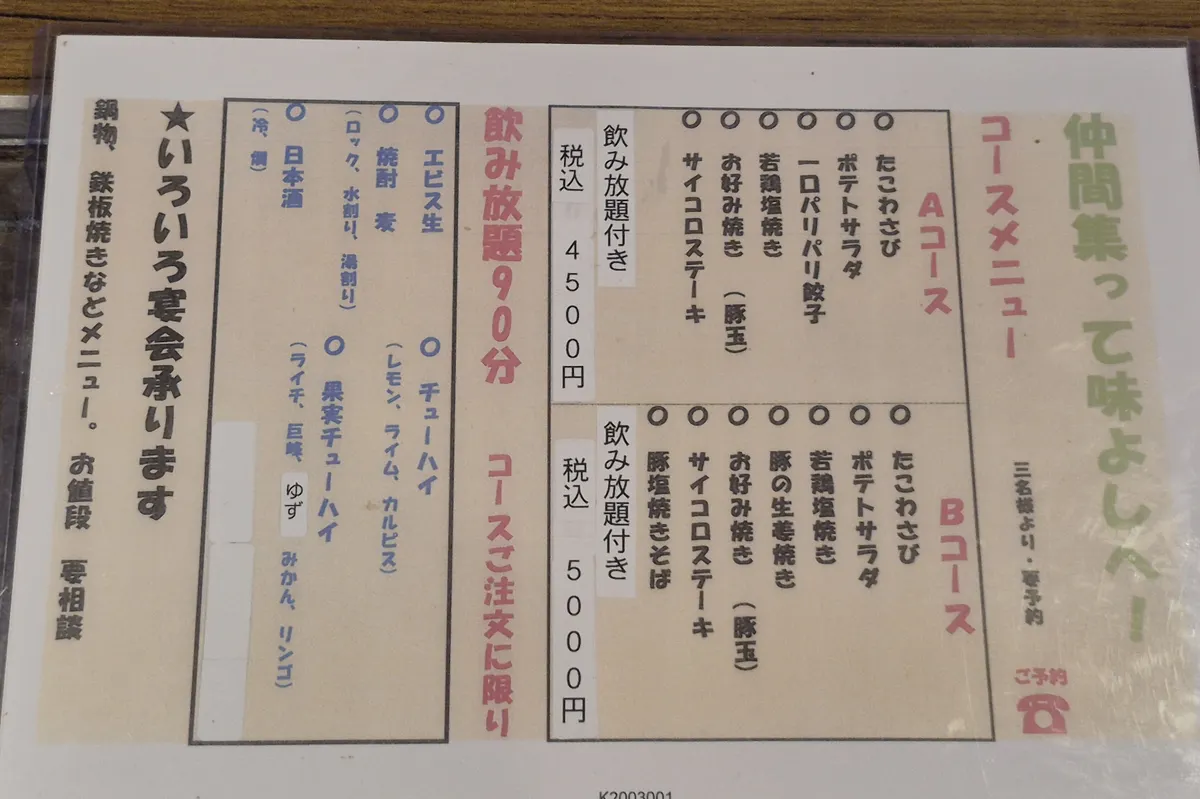 仲間集って味よしへ！
コースメニュー
三名様より・要予約
ご予約
Aコース
○ たこわさび
○ ポテトサラダ
○ 一口パリパリ餃子
○ 若鶏塩焼き
○ お好み焼き（豚玉）
○ サイコロステーキ
飲み放題付き
税込 4500円
Bコース
○ たこわさび
○ ポテトサラダ
○ 若鶏塩焼き
○ 豚の生姜焼き
○ お好み焼き（豚玉）
○ サイコロステーキ
○ 豚塩焼きそば
飲み放題付き
税込 5000円
飲み放題90分 コースご注文に限り
○ エビス生
○ 焼酎 麦
（ロック、水割り、湯割り）
○ 日本酒
（冷、燗）
○ チューハイ
（レモン、ライム、カルピス）
○ 果実チューハイ
（ライチ、巨峰、ゆず みかん、リンゴ）
★いろいろ宴会承ります
鍋物、鉄板焼きなどメニュー。お値段 要相談
K2003001